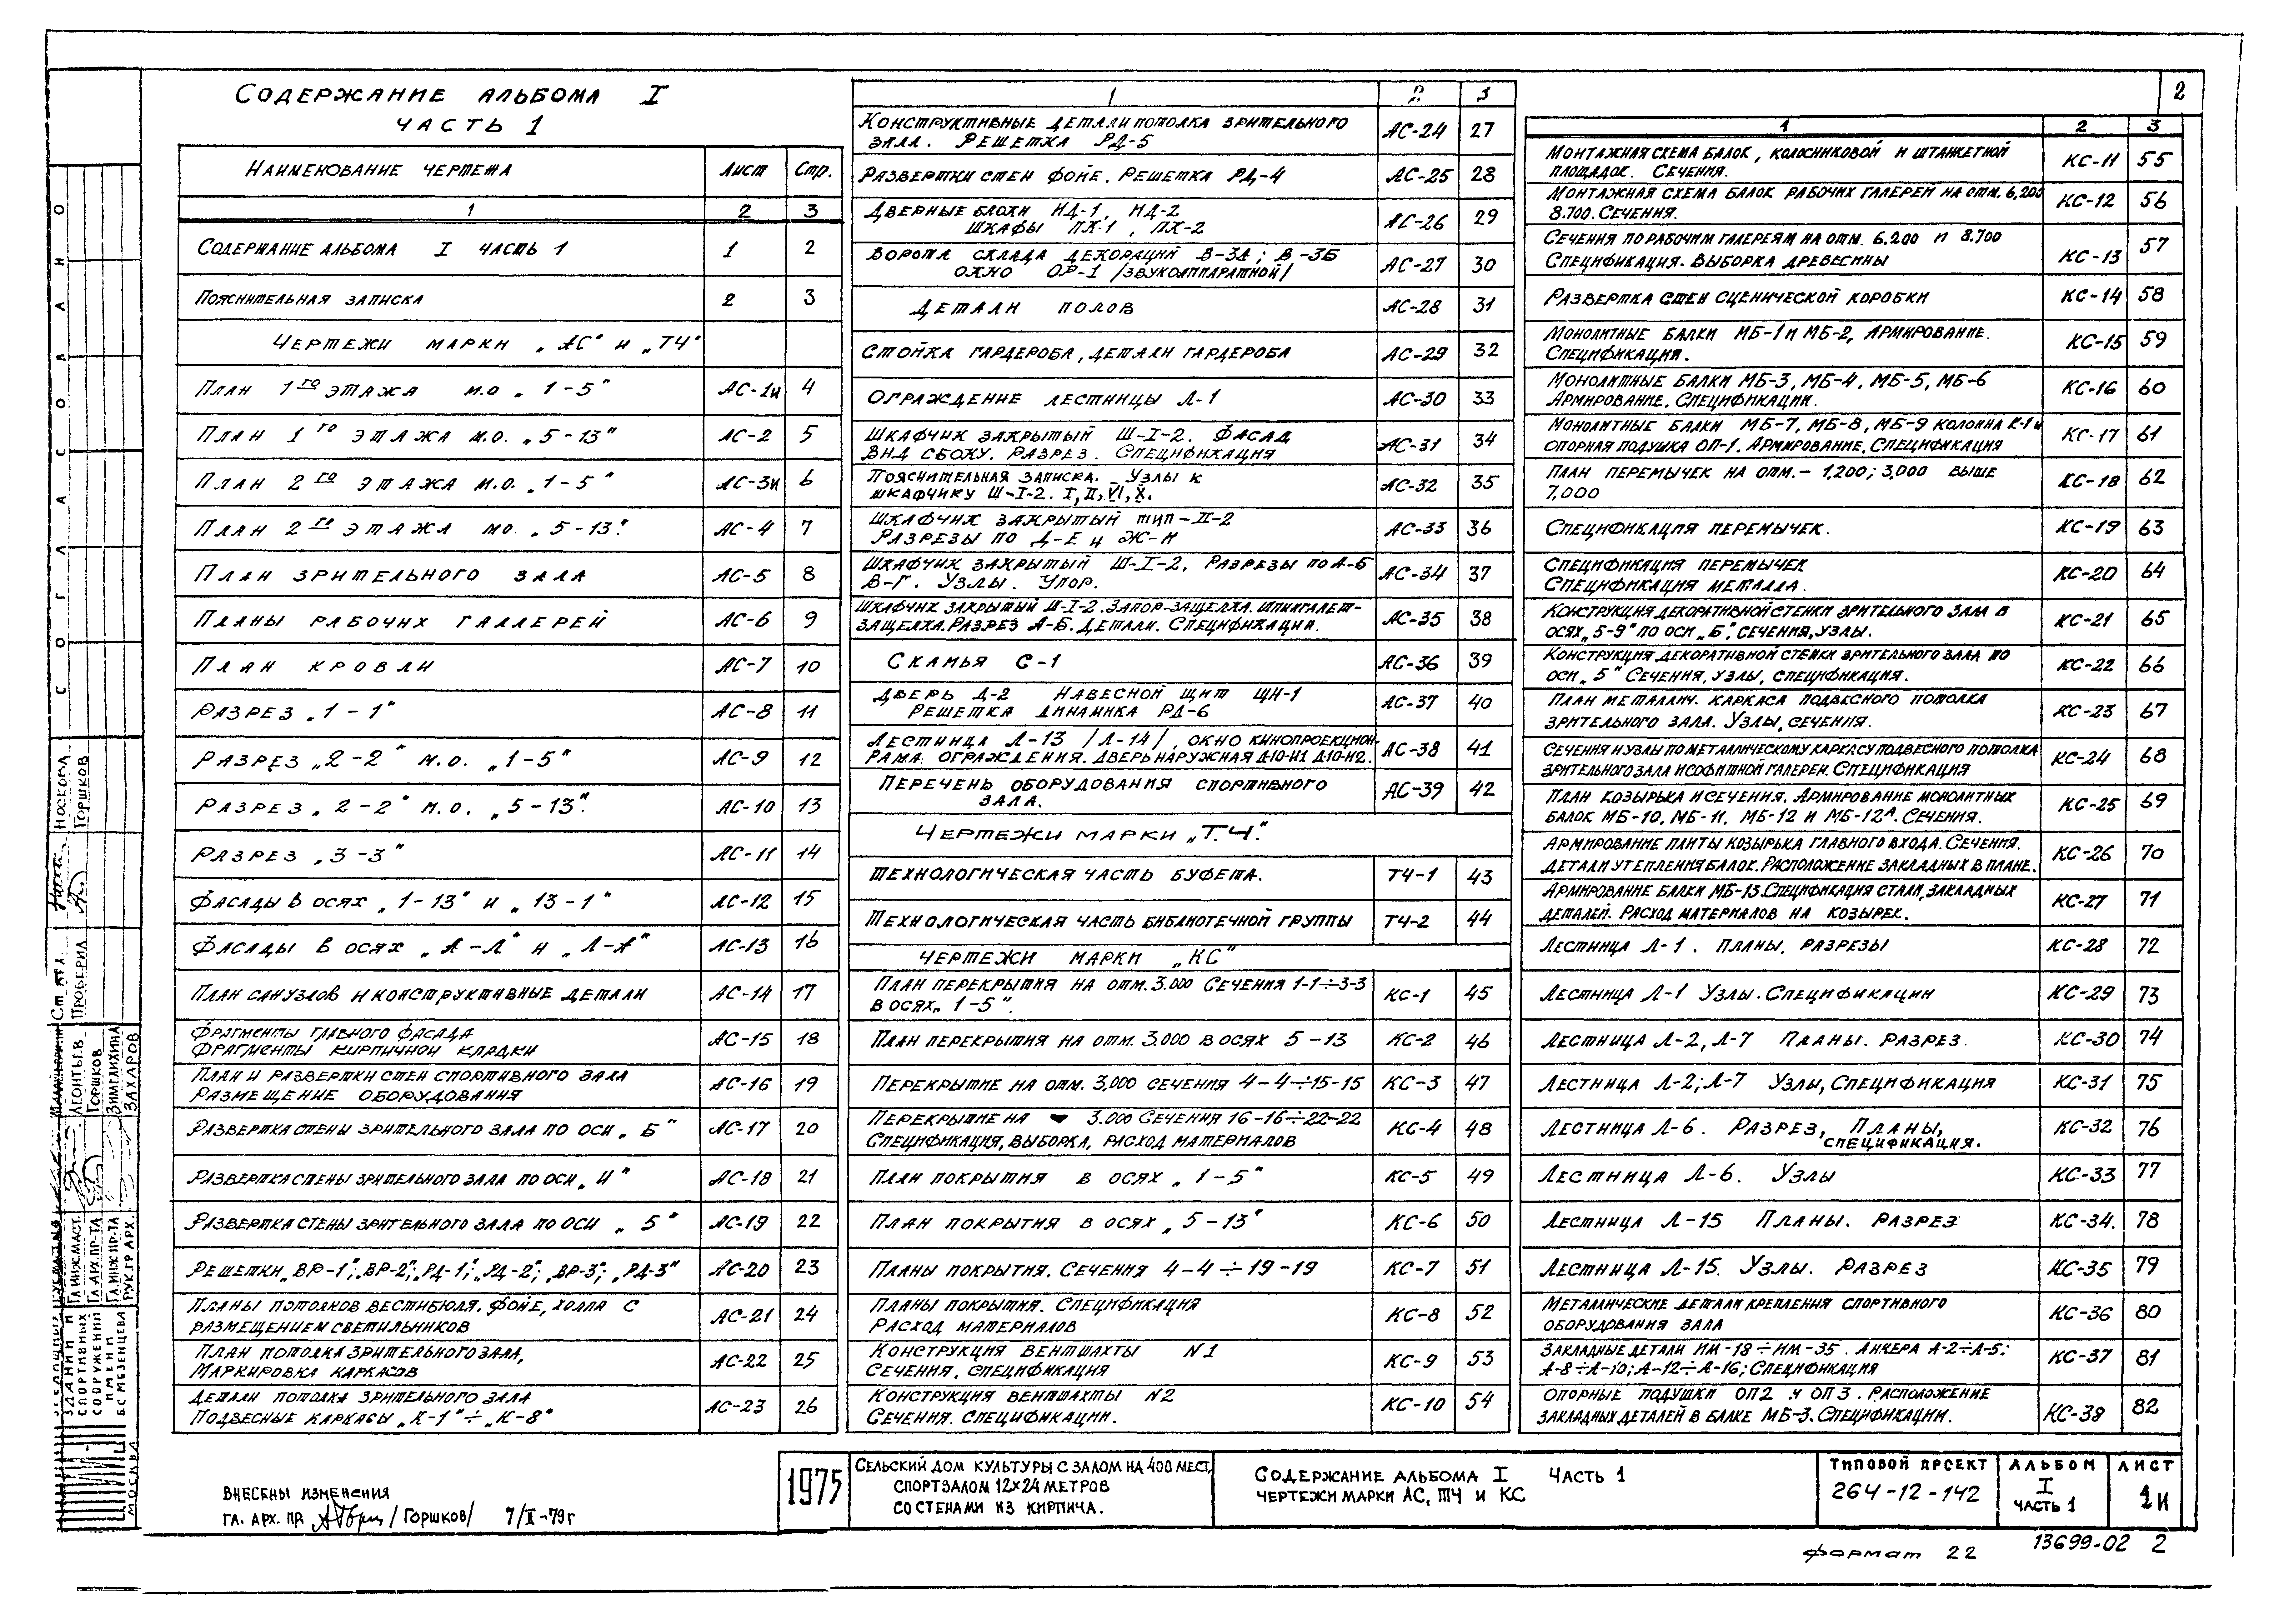 2
Содержание альбома I
часть 1
Наименование чертежа Лист Стр.
1 2 3
Содержание альбома I часть 1 1 2
Пояснительная записка 2 3
Чертежи марки „АС" и „ТЧ"
План 1го этажа м.о „1-5" АС-1и 4
План 1го этажа м.о. „5-13" АС-2 5
План 2го этажа м.о. „1-5" АС-3и 6
План 2го этажа м.о. „5-13". АС-4 7
План зрительного зала АС-5 8
Планы рабочих галлерей АС-6 9
План кровли АС-7 10
Разрез „1-1" АС-8 11
Разрез „2-2" м.о. „1-5" АС-9 12
Разрез „2-2" м.о. „5-13". АС-10 13
Разрез „3-3" АС-11 14
Фасады в осях „1-13" и „13-1" АС-12 15
Фасады в осях „А-Л" и „Л-А" АС-13 16
План санузлов и конструктивные детали АС-14 17
Фрагменты главного фасада
Фрагменты кирпичной кладки АС-15 18
План и развертки стен спортивного зала
Размещение оборудования АС-16 19
Развертка стены зрительного зала по оси „Б" АС-17 20
Развертка стены зрительного зала по оси „И" АС-18 21
Развертка стены зрительного зала по оси „5" АС-19 22
Решетки „ВР-1"; „ВР-2"; „РД-1"; „РД-2"; „ВР-3"; „РД-3" АС-20 23
Планы потолков вестибюля, фойе, холла с
размещением светильников АС-21 24
План потолка зрительного зала,
Маркировка каркасов АС-22 25
Детали потолка зрительного зала
Подвесные каркасы „К-1"÷„К-8" АС-23 26
1 2 3
Конструктивные детали потолка зрительного
зала. Решетка РД-5 АС-24 27
Развертки стен фойе. Решетка РД-4 АС-25 28
Дверные блоки НД-1, НД-2
Шкафы ПК-1, ПК-2 АС-26 29
Ворота склада декораций В-3А; В-3Б
окно ОР-1 /звукоаппаратной/ АС-27 30
Детали полов АС-28 31
Стойка гардероба, детали гардероба АС-29 32
Ограждение лестницы Л-1 АС-30 33
Шкафчик закрытый Ш-I-2. Фасад
Вид сбоку. Разрез. Спецификация АС-31 34
Пояснительная записка. Узлы к
шкафчику Ш-I-2. I, II, VI, X. АС-32 35
Шкафчик закрытый тип-II-2
Разрезы по Д-Е и Ж-И АС-33 36
Шкафчик закрытый Ш-I-2. Разрезы по А-Б
В-Г. Узлы. Упор. АС-34 37
Шкафчик закрытый Ш-I-2. Запор-защелка. Шпингалет-
защелка. Разрез А-Б. Детали. Спецификация. АС-35 38
Скамья С-1 АС-36 39
Дверь Д-2 Навесной щит ЩН-1
Решетка динамика РД-6 АС-37 40
Лестница Л-13 /Л-14/, окно кинопроекцион.
Рама ограждения. Дверь наружная Д-10-И1 Д-10-И2. АС-38 41
Перечень оборудования спортивного
зала. АС-39 42
Чертежи марки „Т.Ч."
Технологическая часть буфета. ТЧ-1 43
Технологическая часть библиотечной группы ТЧ-2 44
Чертежи марки „КС"
План перекрытия на отм. 3.000 Сечения 1-1÷3-3
в осях „1-5". КС-1 45
План перекрытия на отм. 3.000 в осях 5-13 КС-2 46
Перекрытие на отм. 3,000 сечения 4-4÷15-15 КС-3 47
Перекрытие на 3.000 Сечения 16-16÷22-22
Спецификация, выборка, расход материалов КС-4 48
План покрытия в осях „1-5" КС-5 49
План покрытия в осях „5-13" КС-6 50
Планы покрытия. Сечения 4-4÷19-19 КС-7 51
Планы покрытия. Спецификация
Расход материалов КС-8 52
Конструкция вентшахты N1
Сечения, спецификация КС-9 53
Конструкция вентшахты N2
Сечения. спецификации. КС-10 54
1 2 3
Монтажная схема балок, колосниковой и штанжетной
площадок. Сечения. КС-11 55
Монтажная схема балок рабочих галерей на отм. 6,200
8.700. Сечения. КС-12 56
Сечения по рабочим галереям на отм. 6.200 и 8.700
Спецификация. Выборка древесины КС-13 57
Развертка стен сценической коробки КС-14 58
Монолитные балки МБ-1 и МБ-2, Армирование.
Спецификация. КС-15 59
Монолитные балки МБ-3, МБ-4, МБ-5, МБ-6
Армирование, Спецификации. КС-16 60
Монолитные балки МБ-7, МБ-8, МБ-9 колонна К-1 и
опорная подушка ОП-1. Армирование, Спецификация КС-17 61
План перемычек на отм. - 1,200; 3,000 выше
7,000 КС-18 62
Спецификация перемычек. КС-19 63
Спецификация перемычек
Спецификация металла. КС-20 64
Конструкция декоративной стенки зрительного зала в
осях „5-9" по оси „Б", сечения, узлы. КС-21 65
Конструкция декоративной стенки зрительного зала по
оси „5" Сечения, узлы, спецификация. КС-22 66
План металлич. каркаса подвесного потолка
зрительного зала. Узлы, сечения. КС-23 67
Сечения и узлы по металлическому каркасу подвесного потолка
зрительного зала и софитной галереи. Спецификация КС-24 68
План козырька и сечения. Армирование монолитных
балок МБ-10, МБ-11, МБ-12 и МБ-12А. Сечения. КС-25 69
Армирование плиты козырька главного входа. Сечения.
Детали утепления балок. Расположение закладных в плане. КС-26 70
Армирование балки МБ-13. Спецификация стали, закладных
деталей. Расход материалов на козырек. КС-27 71
Лестница Л-1. Планы, разрезы КС-28 72
Лестница Л-1 Узлы. Спецификации КС-29 73
Лестница Л-2, Л-7 Планы. Разрез. КС-30 74
Лестница Л-2; Л-7 Узлы, Спецификация КС-31 75
Лестница Л-6. Разрез, Планы,
спецификация. КС-32 76
Лестница Л-6. Узлы КС-33 77
Лестница Л-15 Планы. Разрез КС-34. 78
Лестница Л-15. Узлы. Разрез КС-35 79
Металлические детали крепления спортивного
оборудования зала КС-36 80
Закладные детали НМ-18÷НМ-35. Анкера А-2÷А-5;
А-8÷А-10; А-12÷А-16; Спецификация КС-37 81
Опорные подушки ОП2 и ОП3. Расположение
закладных деталей в балке МБ-3. Спецификации. КС-38 82
Внесены изменения
Гл. арх. пр. /Горшков/ 7/II-79г
1975
Сельский дом культуры с залом на 400 мест,
спортзалом 12х24 метров
со стенами из кирпича.
Содержание альбома I Часть 1
Чертежи марки АС, ТЧ и КС
Типовой проект
264-12-142
Альбом
I
часть 1
Лист
1и
13699-02 2
формат 22
Согласовано
Носкова
Горшков
Ст. арх.
Проверил
Леонтьев
Горшков
Зимелихина
Захаров
Гл инж. маст.
Гл. арх. пр-та
Гл. инж пр-та
Рук. гр арх.
зданий и
спортивных
сооружений
имени
Б С Мезенцева
Москва